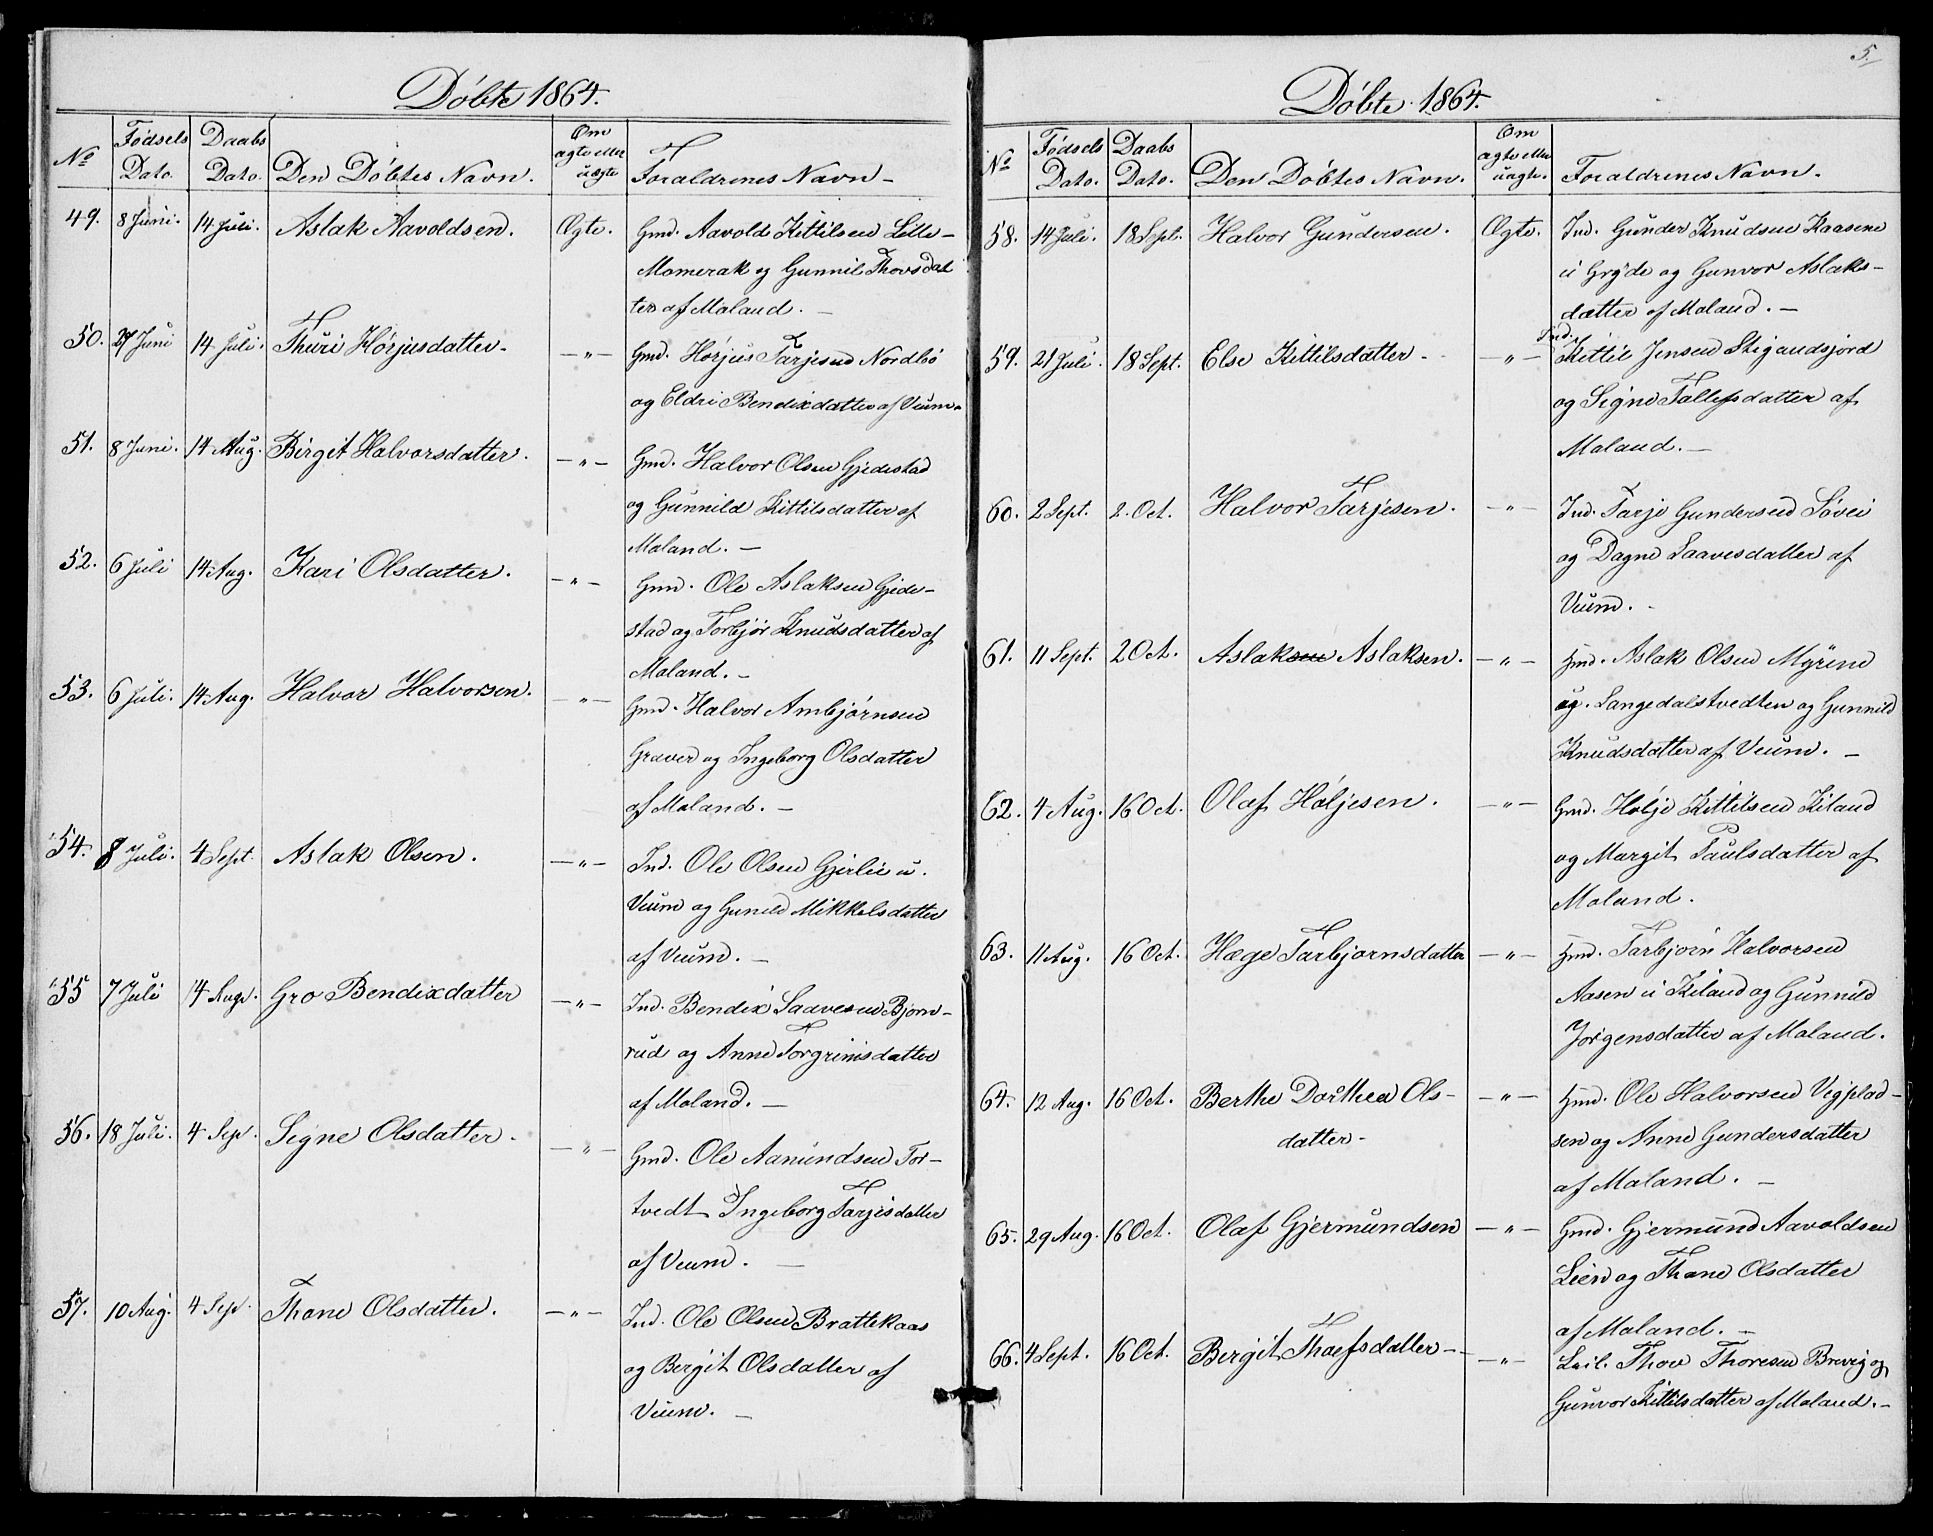 Døbte 1864.
No
Fødsels Dato.
Daabs Dato.
Den Døbtes Navn.
Om ægte eller uægte
Forældrenes Navn
49. 8 Juni. 14 Juli. Aslak Aavoldsen. Ægte. Gmd. Aavold Kittilsen Lille-
Momerak og Gunnil Thorsdat
ter af Moland. —
50. 27 Juni 14 Juli. Thuri Hørjusdatter. —"— Gmd. Hørjus Tarjesen Nordbö
og Eldri Bendixdatter af Veum.
51. 8 Juni. 14 Aug. Birgit Halvorsdatter. —"— Gmd. Halvor Olsen Gjedestad
og Gunnild Kittilsdatter af
Moland. —
52. 6 Juli 14 Aug. Kari Olsdatter. —"— Gmd. Ole Aslaksen Gjede-
stad og Torbjør Knudsdatter af
Moland. —
53. 6 Juli. 14 Aug. Halvor Halvorsen. —"— Gmd. Halvor Ambjørnsen
Graver og Ingeborg Olsdatter
af Moland. —
54. 8 Juli. 4 Sept. Aslak Olsen. —"— Ind. Ole Olsen Gjerlie u.
Veum og Gunild Mikkelsdatter
af Veum. —
55 7 Juli 14 Aug. Gro Bendixdatter —"— Ind. Bendix Saavesen Bjørn-
rud og Anne Torgrimsdatter
af Moland. —
56. 18 Juli. 4 Sep. Signe Olsdatter. —"— Gmd. Ole Aamundsen For-
tvedt Ingeborg Tarjesdatter
af Veum. —
57. 10 Aug. 4 Sep. Thone Olsdatter. —"— Ind. Ole Olsen Brattekaas
og Bergit Olsdatter af
Veum. —
5.
Døbte 1864.
No
Fødsels Dato.
Daabs Dato.
Den Døbtes Navn.
Om ægte eller uægte.
Forældrenes Navn.
58. 14 Juli. 18 Sept. Halvor Gundersen. Ægte. Ind. Gunder Knudsen Kaasene
u Gryde og Gunvor Aslaks-
datter af Moland. —
59. 21 Juli. 18 Sept. Else Kittilsdatter —"— Ind. Kittil Jensen Stigandsjord
og Signe Tallefsdatter af
Moland. —
60. 2 Sept. 2. Oct. Halvor Tarjesen. —"— Ind. Tarje Gundersen Løvei
og Dagne Saavesdatter af
Veum. -
61. 11 Sept. 2 Oct. Aslaksen Aslaksen. —"— Hmd. Aslak Olsen Myrene
u. Langedalstvedten og Gunnild
Knudsdatter af Veum. —
62. 4 Aug. 16 Oct. Olaf Høljesen. —"— Gmd. Hølje Kittilsen Kiland
og Margit Paulsdatter af
Moland.
63. 11 Aug. 16 Oct. Hæge Tarbjørnsdatter —"— Hmd. Tarbjørn Halvorsen
Aasen u Kiland og Gunnild
Jørgensdatter af Moland.
64. 12 Aug. 16 Oct. Berthe Dorthea Ols- —"— Hmd. Ole Halvorsen Vigplad-
datter - sen og Anne Gundersdatter
af Moland. —
65. 29 Aug. 16 Oct. Olaf Gjermundsen —"— Gmd. Gjermund Aavoldsen
Lien og Thone Olsdatter
af Moland. —
66. 4 Sept. 16 Oct. Bergit Thoefsdatter —"— Leil. Thov Thoresen Brevig og
Gunvor Kittilsdatter af Moland. -